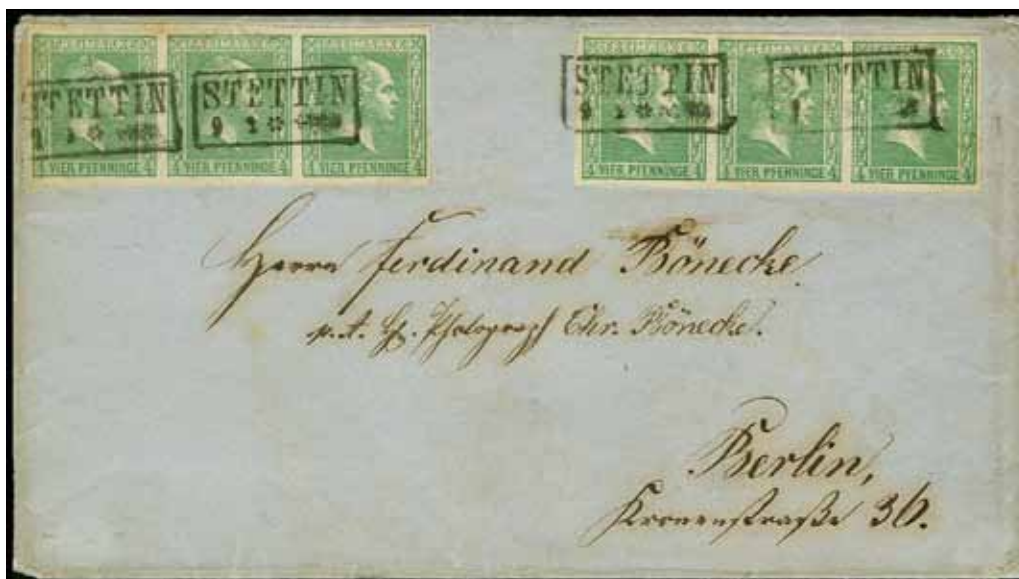 FREIMARKE FREIMARKE FREIMARKE
STETTIN STETTIN
9 2 9 2
4 VIER PFENNINGE 4 4 VIER PFENNINGE 4 4 VIER PFENNINGE 4
FREIMARKE FREIMARKE FREIMARKE
STETTIN STETTIN
9 2
4 VIER PFENNINGE 4 4 VIER PFENNINGE 4 4 VIER PFENNINGE 4
Herrn Ferdinand Bönecke
p. A. H. Photograph Chr. Bönecke.
Berlin,
Kronenstraße 36.